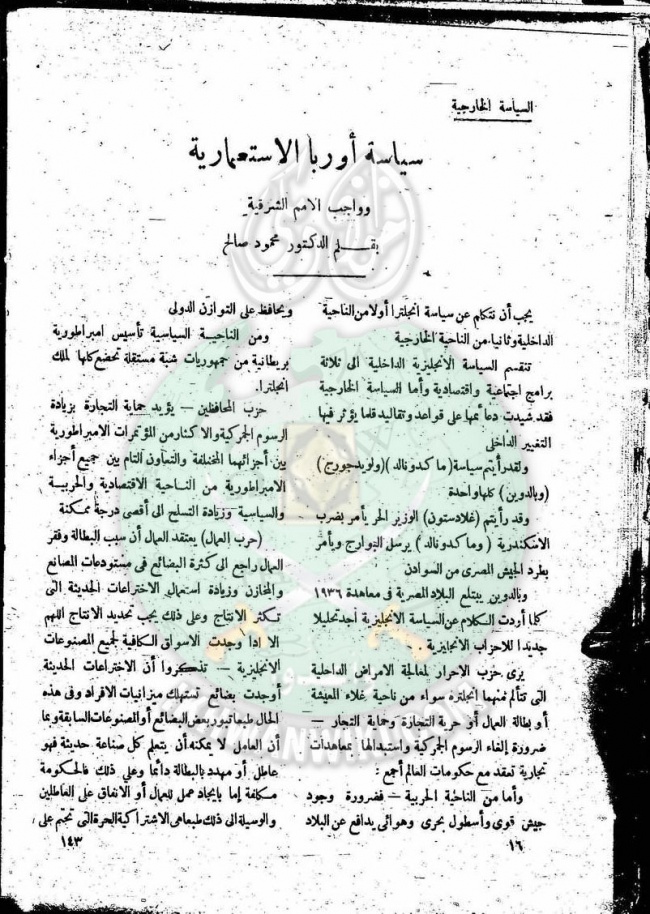 السياسة الخارجية
سياسة أوربا الاستعمارية
وواجب الامم الشرقية
بقلم الدكتور محمود صالح
يجب أن نتكلم عن سياسة انجلترا أولا من الناحية
الداخلية وثانيا من الناحية الخارجية
تنقسم السياسة الانجليزية الداخلية الى ثلاثة
برامج اجتماعية واقتصادية وأما السياسة الخارجية
فقد شيدت دعائمها على قواعد وتقاليد قلما يؤثر فيها
التغيير الداخلى
ولقد رأيتم سياسة (ما كدونالد) (ولويد جورج)
(وبالدوين) كلها واحدة
وقد رأيتم (غلادستون) الوزير الحر يأمر بضرب
الاسكندرية (وما كدونالد) يرسل البوارج ويأمر
بطرد الجيش المصرى من السودان
وبالدوين يبتلع البلاد المصرية فى معاهدة ١٩٣٦
كلما أردت الكلام عن السياسة الانجليزية أجد تحليلا
جديدا للاحزاب الانجليزية
يرى حزب الاحرار لمعالجة الامراض الداخلية
التى تتألم منها انجلترة سواء من ناحية غلاء المعيشة
أو بطالة العمال أو حرية التجارة وحماية التجار —
ضرورة إلغاء الرسوم الجمركية واستبدالها بمعاهدات
تجارية تعقد مع حكومات العالم أجمع :
وأما من الناحية الحربية — فضرورة وجود
جيش قوى وأسطول بحرى وهوائى يدافع عن البلاد
١٦
ويحافظ على التوازن الدولى
ومن الناحية السياسية تأسيس امبراطورية
بريطانية من جمهوريات شبة مستقلة تخضع كلها لملك
انجلترا.
حزب المحافظين — يؤيد حماية التجارة بزيادة
الرسوم الجمركية والاكثار من المؤتمرات الامبراطورية
بين أجزائهما المختلفة والتعاون التام بين جميع أجزاء
الامبراطورية من الناحية الاقتصادية والحربية
والسياسية وزيادة التسلح الى أقصى درجة ممكنة
(حرب العمال) يعتقد العمال أن سبب البطالة وفقر
العمال راجع الى كثرة البضائع فى مستودعات المصانع
والمخازن وزيادة استعمال الاختراعات الحديثة التى
تكثر الانتاج وعلى ذلك يجب تحديد الانتاج اللهم
الا اذا وجدت الاسواق الكافية لجميع المصنوعات
الانجليزية — تذكروا أن الاختراعات الحديثة
أوجدت بضائع تستهلك ميزانيات الافراد وفى هذه
الحال طبعا تبور بعض البضائع أو المصنوعات السابقة وبما
أن العامل لا يمكنه أن يتعلم كل صناعة حديثة فهو
عاطل أو مهدد بالبطالة دائما وعلى ذلك فالحكومة
مكلفة إما بايجاد عمل للعمال أو الانفاق على العاطلين
والوسيلة الى ذلك طبعا هى الاشتراكية الحرة التى تحتم على
١٤٣